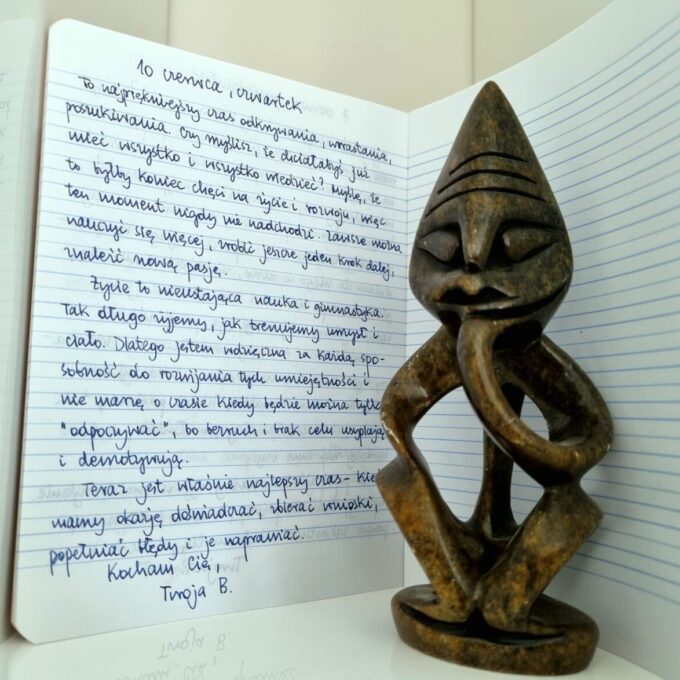 10 czerwca, czwartek
To najpiękniejszy czas odkrywania, wzrastania,
poszukiwania. Czy myślisz, że chciałabyś już
mieć wszystko i wszystko wiedzieć? Myślę, że
to byłby koniec chęci na życie i rozwoju, więc
ten moment nigdy nie nadchodzi. Zawsze można
nauczyć się więcej, zrobić jeszcze jeden krok dalej,
znaleźć nową pasję.
Życie to nieustająca nauka i gimnastyka.
Tak długo żyjemy, jak trenujemy umysł i
ciało. Dlatego jestem wdzięczna za każdą spo-
sobność do rozwijania tych umiejętności i
nie marzę o czasie kiedy będzie można tylko
"odpoczywać", bo bezruch i brak celu usypiają
i demotywują.
Teraz jest właśnie najlepszy czas - kie
mamy okazję doświadczać, zbierać wnioski,
popełniać błędy i je naprawiać.
Kocham Cię,
Twoja B.